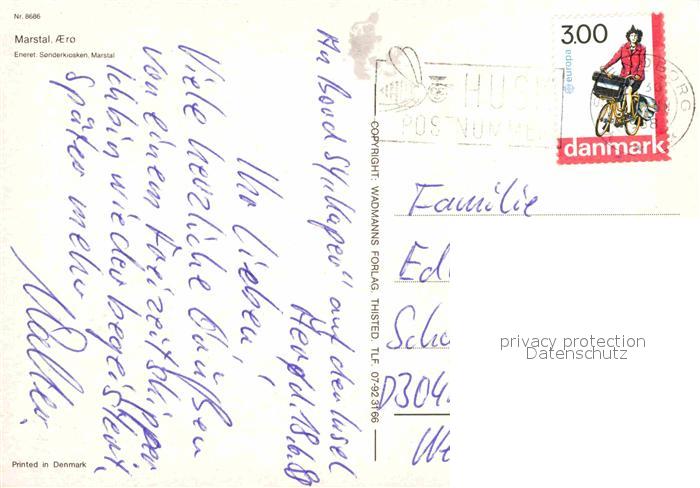 Nr. 8686
Marstal, Ærø
Eneret: Sønderkiosken, Marstal
An Bord „ auf der Insel
18.6.88
Ihr Lieben!
Viele herzliche Grüßen
von einem Freizeitskipper
Ich bin wieder begeistert,
später mehr
Walter.
Printed in Denmark
COPYRIGHT: WADMANNS FORLAG, THISTED, TLF. 07-92 31 66
HUSK
POSTNUMMER
3.00
europa
danmark
Familie
Ed
Sch
D304
We
privacy protection
Datenschutz